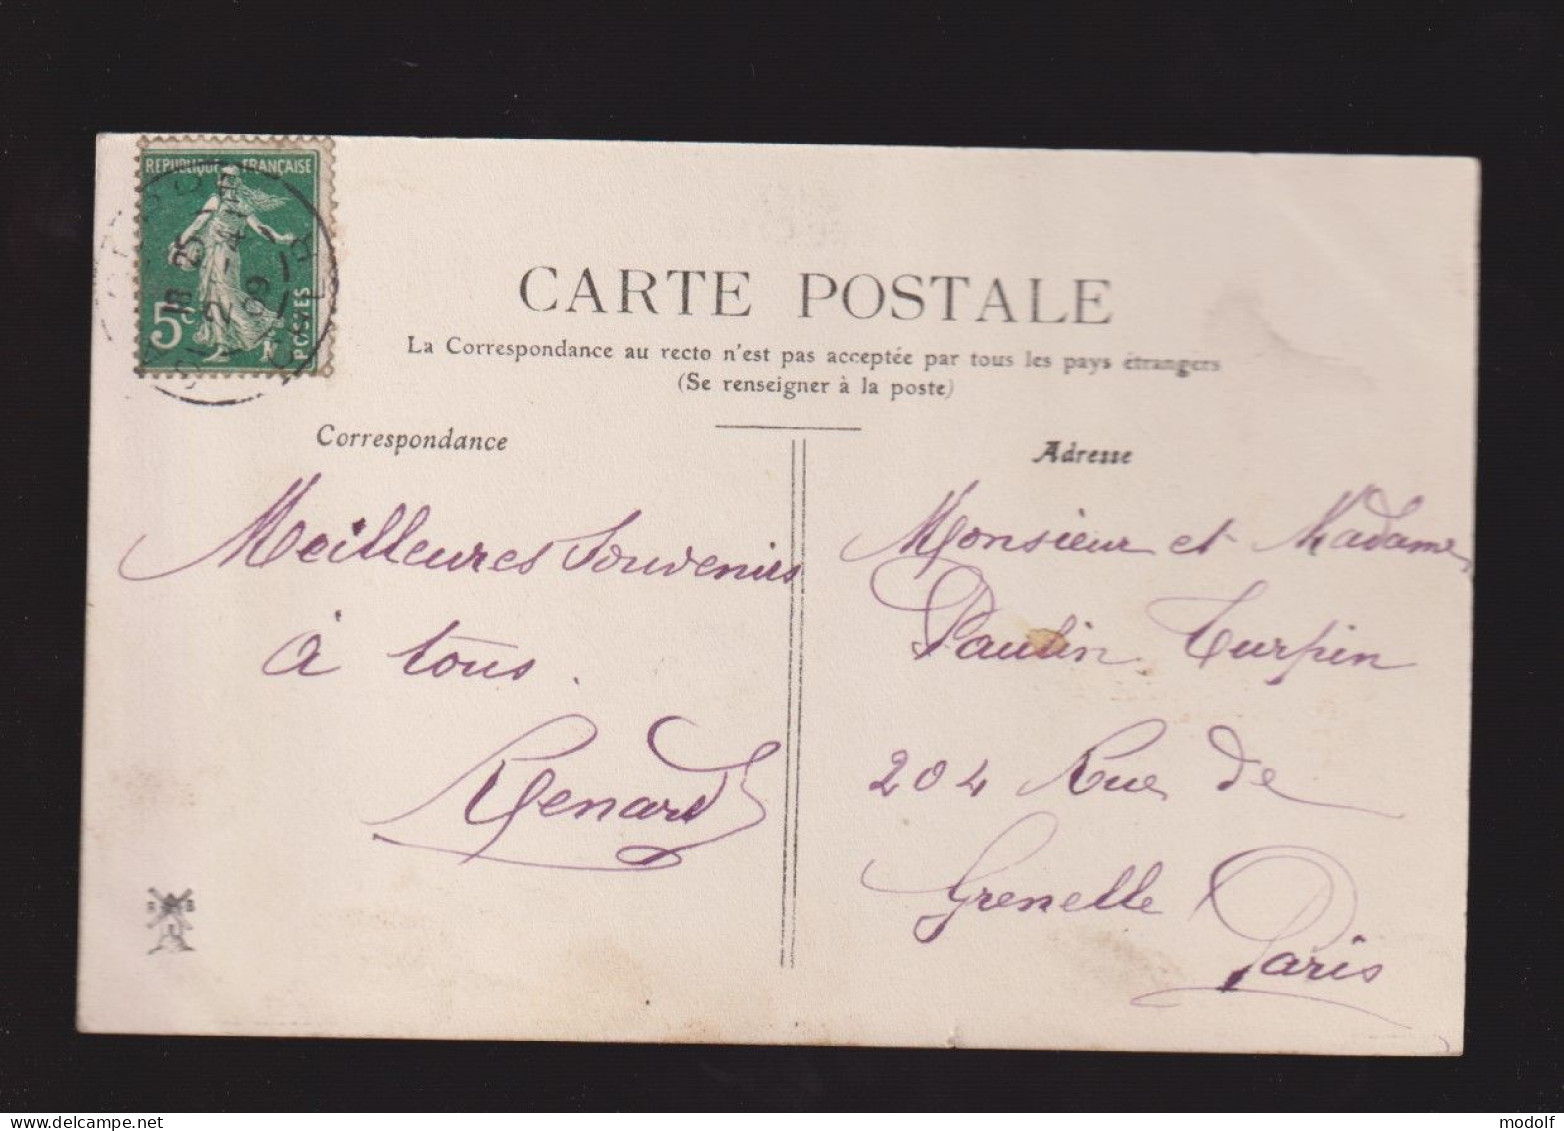 REPUBLIQUE FRANÇAISE
5c
POSTES
18 25
2 - 4
09
CARTE POSTALE
La Correspondance au recto n'est pas acceptée par tous les pays étrangers
(Se renseigner à la poste)
Correspondance
Meilleures Souvenirs
à tous.
Renard
Adresse
Monsieur et Madame
Paulin Turpin
204 Rue de
Grenelle
Paris
delcampe.net
modolf